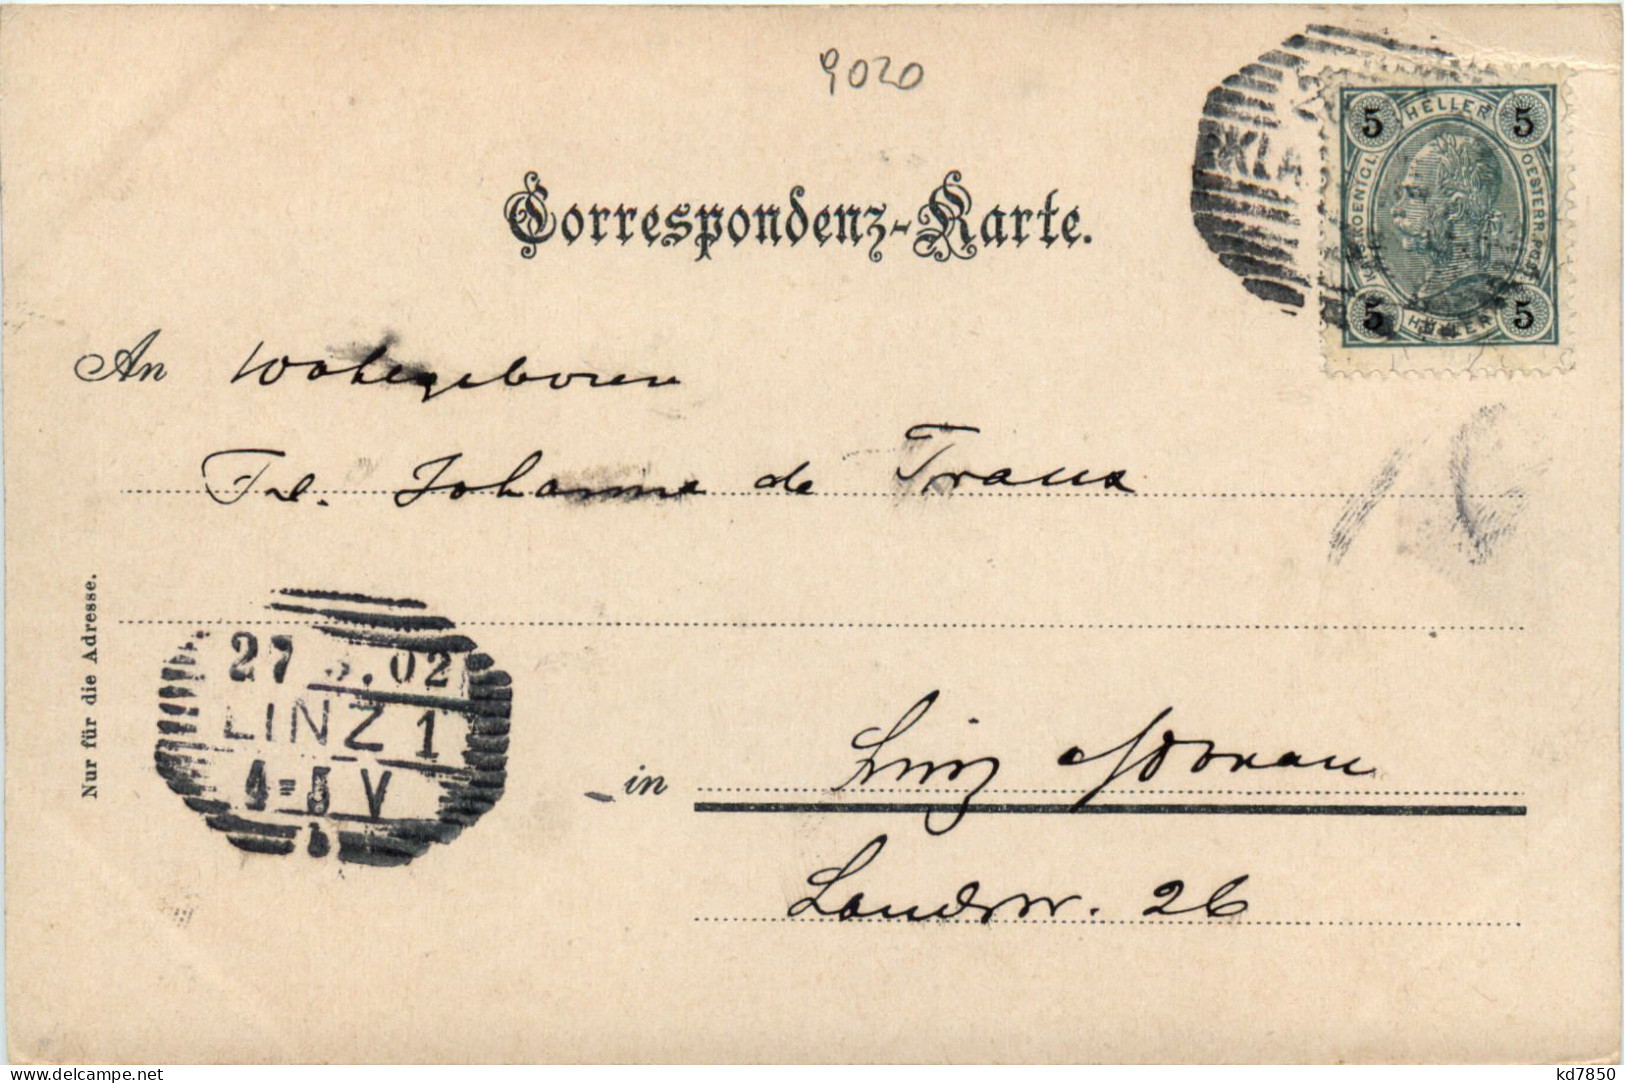 9020
5 HELLER 5
KAIS. KOENIGL. OESTERR. POST
5 HELLER 5
KLA
Correspondenz-Karte.
An Wohlgeboren
Frl. Johanna de Traux
Nur für die Adresse.
27 3.02
LINZ 1
4-5 V
b
in Linz a/Donau
Landstr. 26
kd7850